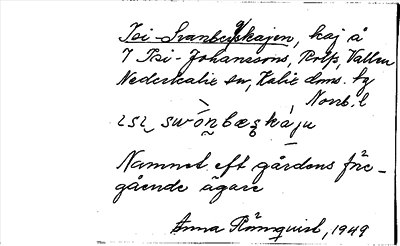 Isi-Svanbergskajen, kaj å
7 Isi-Johanssons, Rolfs, Vallen
Nederkalix sn, Kalix doms. by
Norrb. l
Namnet eft gårdens före-
gående ägare
Anna Rönnqvist, 1949